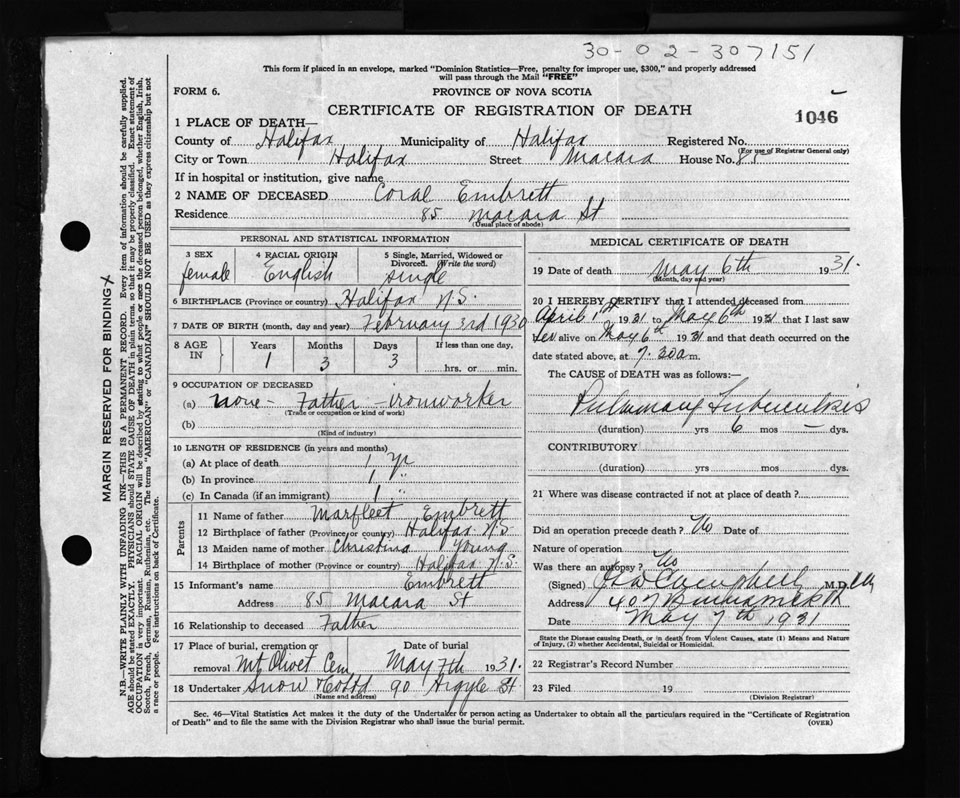 30-02-307151
This form if placed in an envelope, marked "Dominion Statistics—Free, penalty for improper use, $300," and properly addressed
will pass through the Mail "FREE"
FORM 6.
PROVINCE OF NOVA SCOTIA
CERTIFICATE OF REGISTRATION OF DEATH
1046
1 PLACE OF DEATH—
County of Halifax Municipality of Halifax Registered No.
(For use of Registrar General only)
City or Town Halifax Street Macara House No. 85
If in hospital or institution, give name
2 NAME OF DECEASED Coral Embrett
Residence 85 Macara St
(Usual place of abode)
PERSONAL AND STATISTICAL INFORMATION
3 SEX 4 RACIAL ORIGIN 5 Single, Married, Widowed or
Divorced. (Write the word)
female English single
6 BIRTHPLACE (Province or country) Halifax N.S.
7 DATE OF BIRTH (month, day and year) February 3rd 1930
8 AGE IN Years Months Days If less than one day,
1 3 3 hrs. or min.
9 OCCUPATION OF DECEASED
(a) none - Father - ironworker
(Trade or occupation or kind of work)
(b)
(Kind of industry)
10 LENGTH OF RESIDENCE (in years and months)
(a) At place of death 1 yr
(b) In province 1 "
(c) In Canada (if an immigrant) 1 "
Parents
11 Name of father Marfleet Embrett
12 Birthplace of father (Province or country) Halifax N.S
13 Maiden name of mother Christina Young
14 Birthplace of mother (Province or country) Halifax N.S.
15 Informant's name Embrett
Address 85 Macara St
16 Relationship to deceased Father
17 Place of burial, cremation or Date of burial
removal Mt Olivet Cem May 7th 1931.
18 Undertaker Snow 90 Argyle St
(Name and address)
MEDICAL CERTIFICATE OF DEATH
19 Date of death May 6th 1931.
(Month, day and year)
20 I HEREBY CERTIFY that I attended deceased from
April 1st 1931 to May 6th 1931 that I last saw
alive on May 6th 1931 and that death occurred on the
date stated above, at 7.30 a m.
The CAUSE of DEATH was as follows:—
Pulmonary Tuberculosis
(duration) yrs 6 mos — dys.
CONTRIBUTORY
(duration) yrs. mos. dys.
21 Where was disease contracted if not at place of death?
Did an operation precede death? No Date of
Nature of operation
Was there an autopsy? No
(Signed) Campbell M.D.
Address 407
Date May 7th 1931
State the Disease causing Death, or in death from Violent Causes, state (1) Means and Nature
of Injury, (2) whether Accidental, Suicidal or Homicidal.
22 Registrar's Record Number
23 Filed 19
(Division Registrar)
Sec. 46—Vital Statistics Act makes it the duty of the Undertaker or person acting as Undertaker to obtain all the particulars required in the "Certificate of Registration
of Death" and to file the same with the Division Registrar who shall issue the burial permit. (OVER)
MARGIN RESERVED FOR BINDING
N.B.—WRITE PLAINLY WITH UNFADING INK—THIS IS A PERMANENT RECORD. Every item of information should be carefully supplied.
AGE should be stated EXACTLY. PHYSICIANS should STATE CAUSE OF DEATH in plain terms, so that it may be properly classified. Exact statement of
OCCUPATION is very important. RACIAL ORIGIN will be described by stating to what people or race the deceased person belonged, whether English, Irish,
Scotch, French, German, Russian, Ruthenian, etc. The terms "AMERICAN" or "CANADIAN" SHOULD NOT BE USED as they express citizenship but not
a race or people. See instructions on back of Certificate.